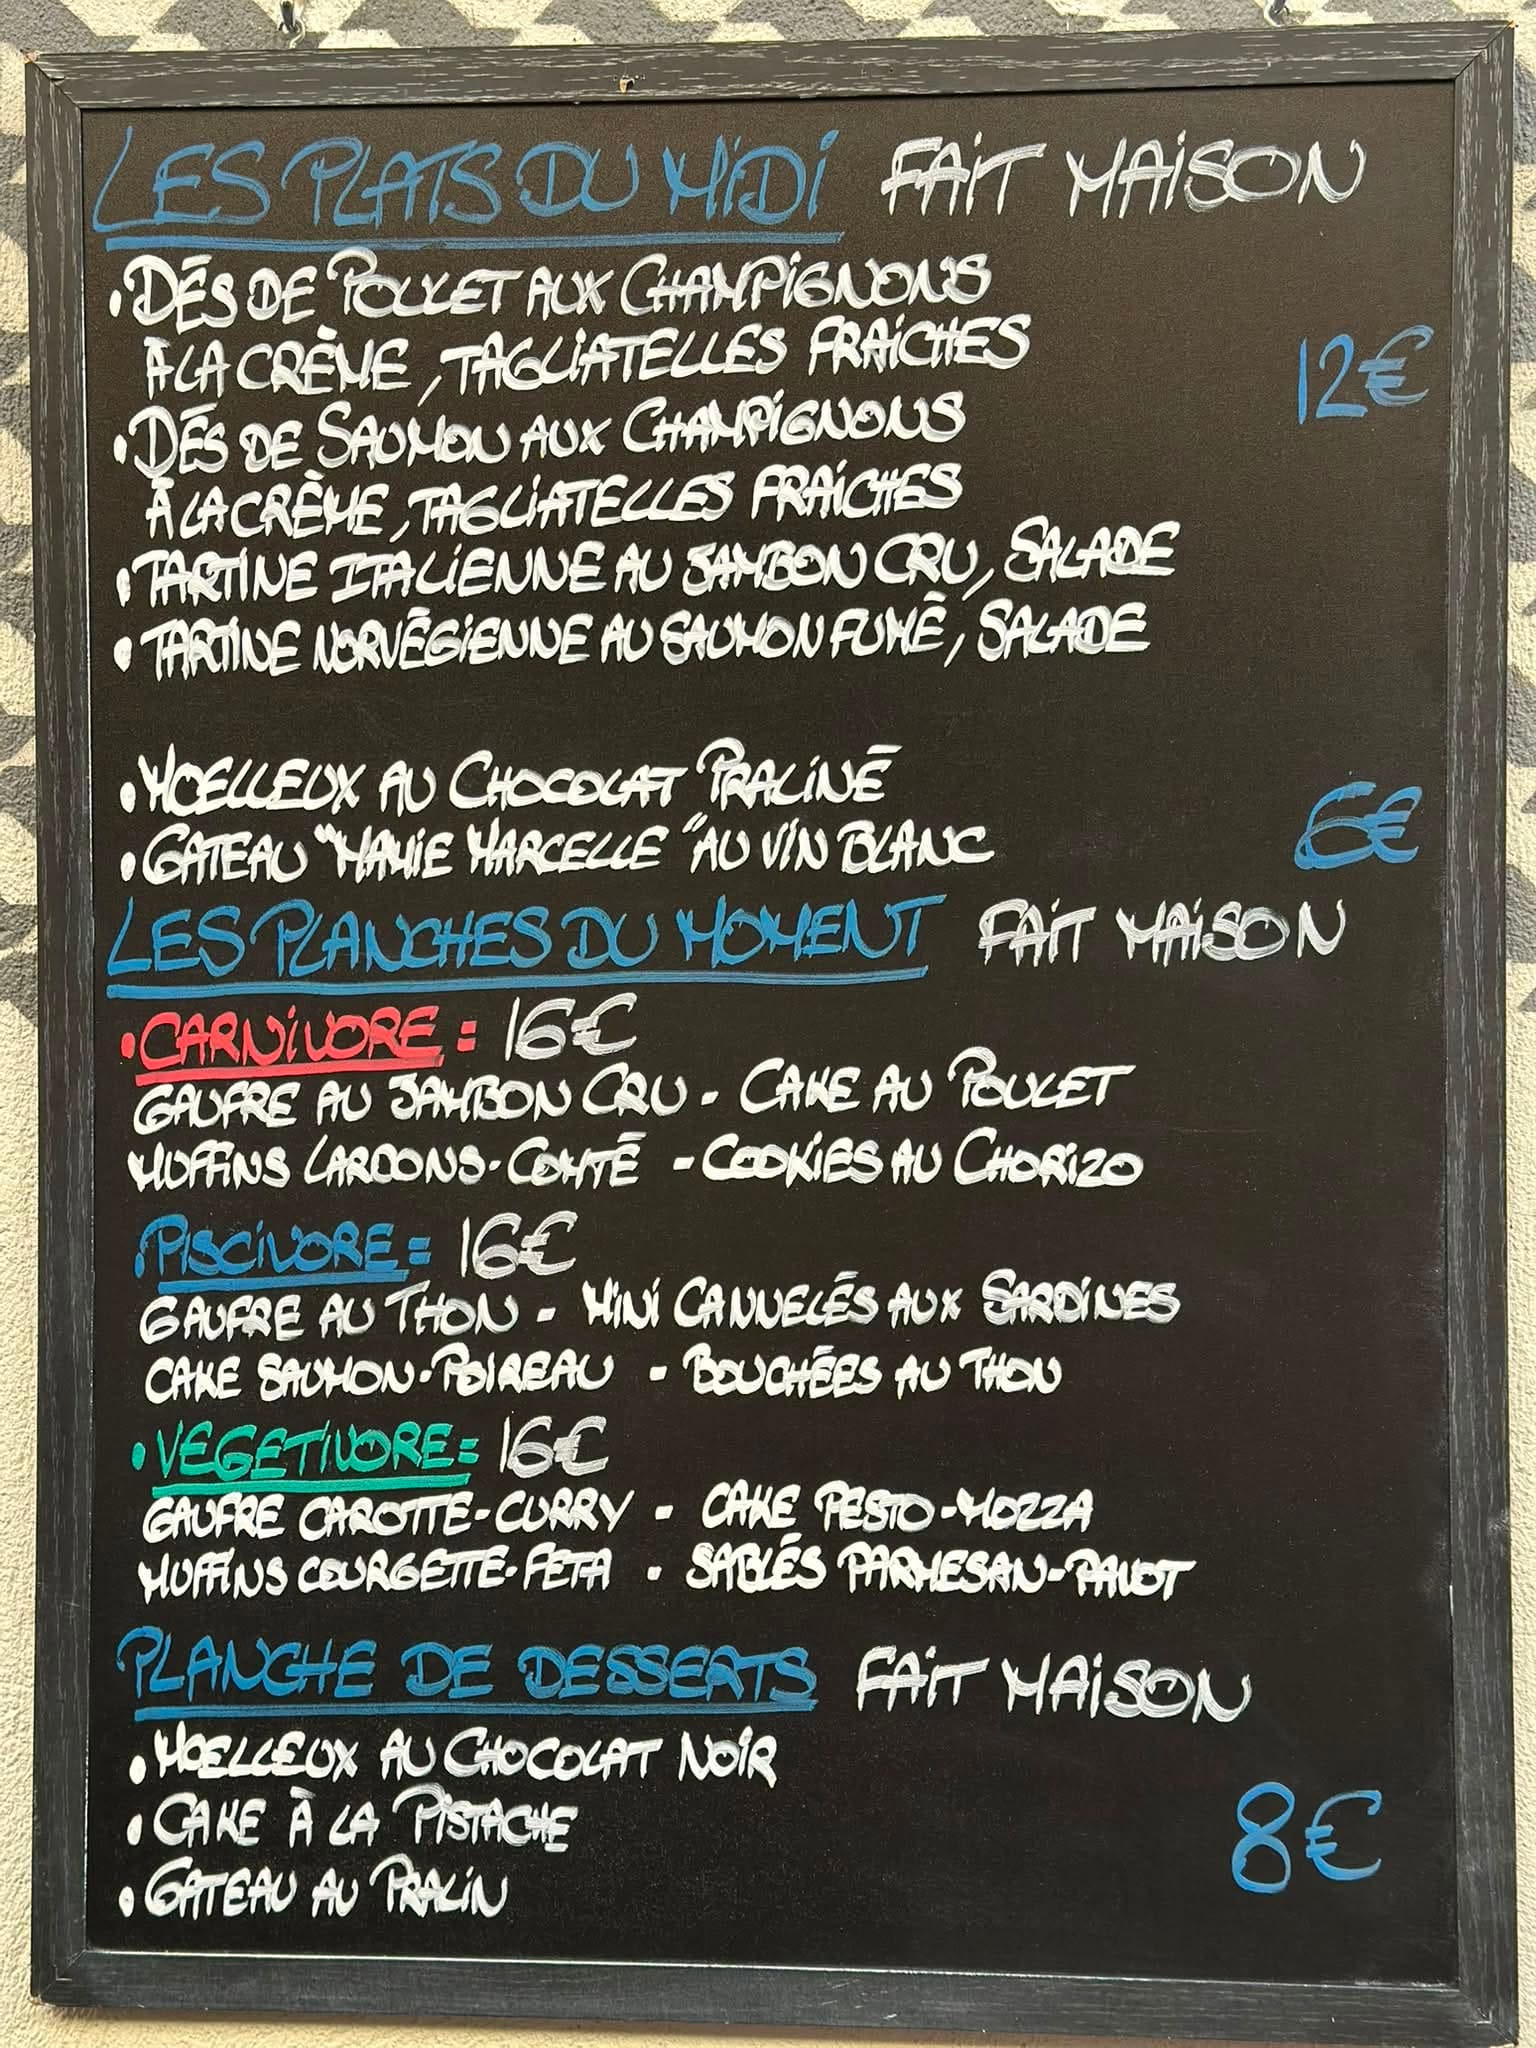 LES PLATS DU MIDI FAIT MAISON
• DÉS DE POULET AUX CHAMPIGNONS
À LA CRÈME, TAGLIATELLES FRAICHES
12€
• DÉS DE SAUMON AUX CHAMPIGNONS
À LA CRÈME, TAGLIATELLES FRAICHES
• TARTINE ITALIENNE AU JAMBON CRU, SALADE
• TARTINE NORVÉGIENNE AU SAUMON FUMÉ, SALADE
• MOELLEUX AU CHOCOLAT PRALINÉ
• GATEAU "MAMIE MARCELLE" AU VIN BLANC
6€
LES PLANCHES DU MOMENT FAIT MAISON
• CARNIVORE = 16€
GAUFRE AU JAMBON CRU - CAKE AU POULET
MUFFINS LARDONS-COMTÉ - COOKIES AU CHORIZO
• PISCIVORE = 16€
GAUFRE AU THON - MINI CANNELÉS AUX SARDINES
CAKE SAUMON-POIREAU - BOUCHÉES AU THON
• VEGETIVORE = 16€
GAUFRE CAROTTE-CURRY - CAKE PESTO-MOZZA
MUFFINS COURGETTE-FETA - SABLÉS PARMESAN-PAVOT
PLANCHE DE DESSERTS FAIT MAISON
• MOELLEUX AU CHOCOLAT NOIR
• CAKE À LA PISTACHE
8€
• GATEAU AU PRALIN